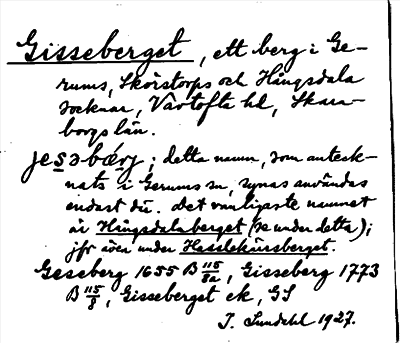 Gisseberget, ett berg i Ge-
rums, Skörstorps och Hångsdala
socknar, Vartofta hd, Skara-
borgs län.
jesəbærj; detta namn, som anteck-
nats i Gerums sn, synes användas
endast där. Det vanligaste namnet
är Hångsdalaberget (se under detta);
jfr även under Hasslekärrsberget.
Geseberg 1655 B 115/8a, Gisseberg 1773
B 115/8, Gisseberget ek, GS
I. Lundahl 1927.